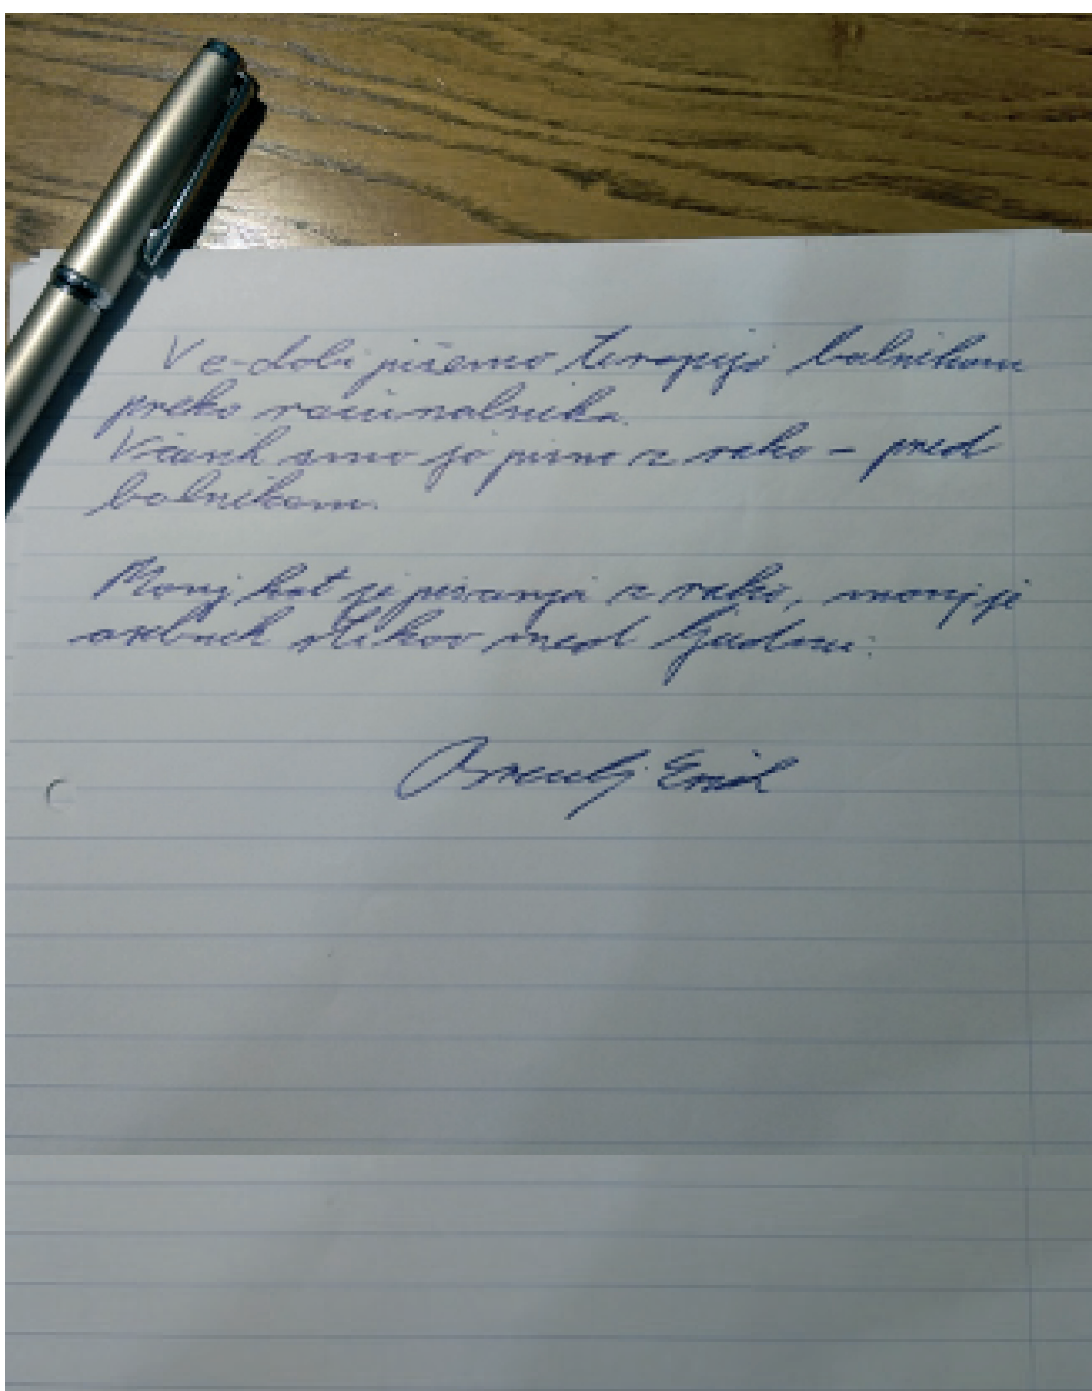 V e-dobi pišemo terapijo bolnikom
preko računalnika.
Včasih smo jo pisno z roko - pred
bolnikom.
Manj kot je pisanja z roko, manj je
osebnih stikov med ljudmi.